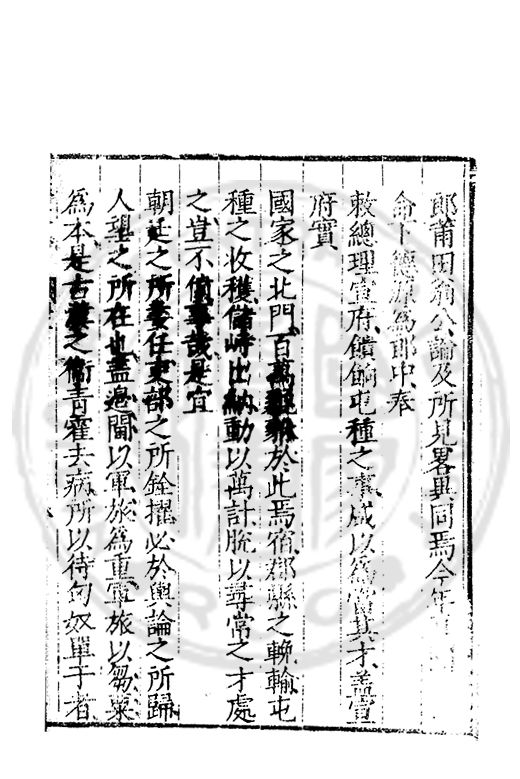 郎莆田翁公論及所見畧異同焉今年
命下德源為郎中奉
敕總理宣府餽餉屯種之事咸以為當其才蓋宣
府實
國家之北門百萬於此焉宿郡縣之輓輸屯
種之收穫儲峙出納動以萬計脫以尋常之才處
之豈不僨事哉是宜
朝廷之所委任吏部之所銓擢必於輿論之所歸
人望之所在也蓋邊閫以軍旅為重軍旅以芻粟
為本是古之衞青霍去病所以待匈奴單于者